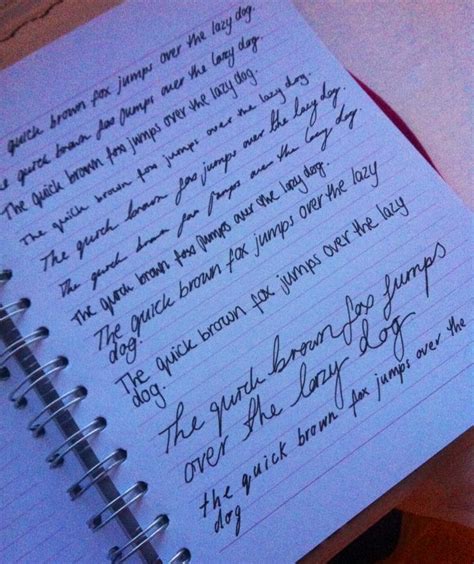 quick brown fox jumps over the lazy dog.
e quick brown fox jumps over the lazy dog.
The quick brown fox jumps over the lazy dog.
The quick brown fox jumps over the lazy dog.
The quick brown fox jumps over the lazy dog.
The quick brown fox jumps over the lazy dog.
The quick brown fox jumps over the lazy dog.
The quick brown fox jumps over the lazy
dog.
The quick brown fox jumps over the lazy
dog.
The quick brown fox jumps
over the lazy dog
the quick brown fox jumps over the
dog